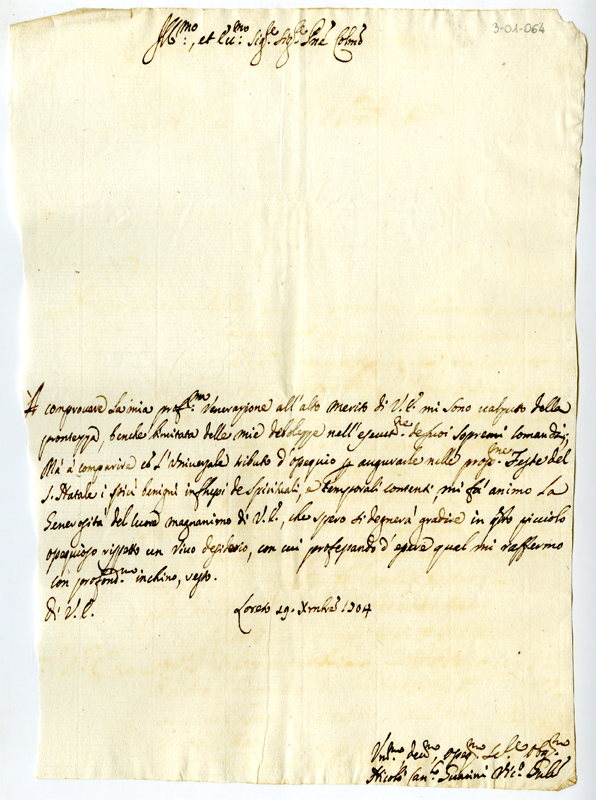 3-01-064
Ill:mo, et Rev:mo Sig:re Sig:re Prone Colmo
A comprovare la mia prof:ma Venerazione all'alto merito di V.S. mi sono valsuto della
prontezza, benche limitata delle mie debolezze nell'esecut:ne de suoi sopremi comandi;
Mà à comparire cō l'Universale tributo d'ossequio p augurarle nelle pross:me Feste del
S. Natale i felici benigni influssi de Spirituali, e temporali contenti mi fà animo la
Generosità del cuore magnanimo di V.S., che spero si degnerà gradire in qsto picciolo
ossequioso rispetto un vivo desiderio, con cui professando d'essere qual mi raffermo
con profond:mo inchino, resto.
Di V.S.
Loreto 29. Xmbre 1704
Um:mo, dev:mo, osseq:mo Se:re Obg:mo
Nicolò Can:co Guarini